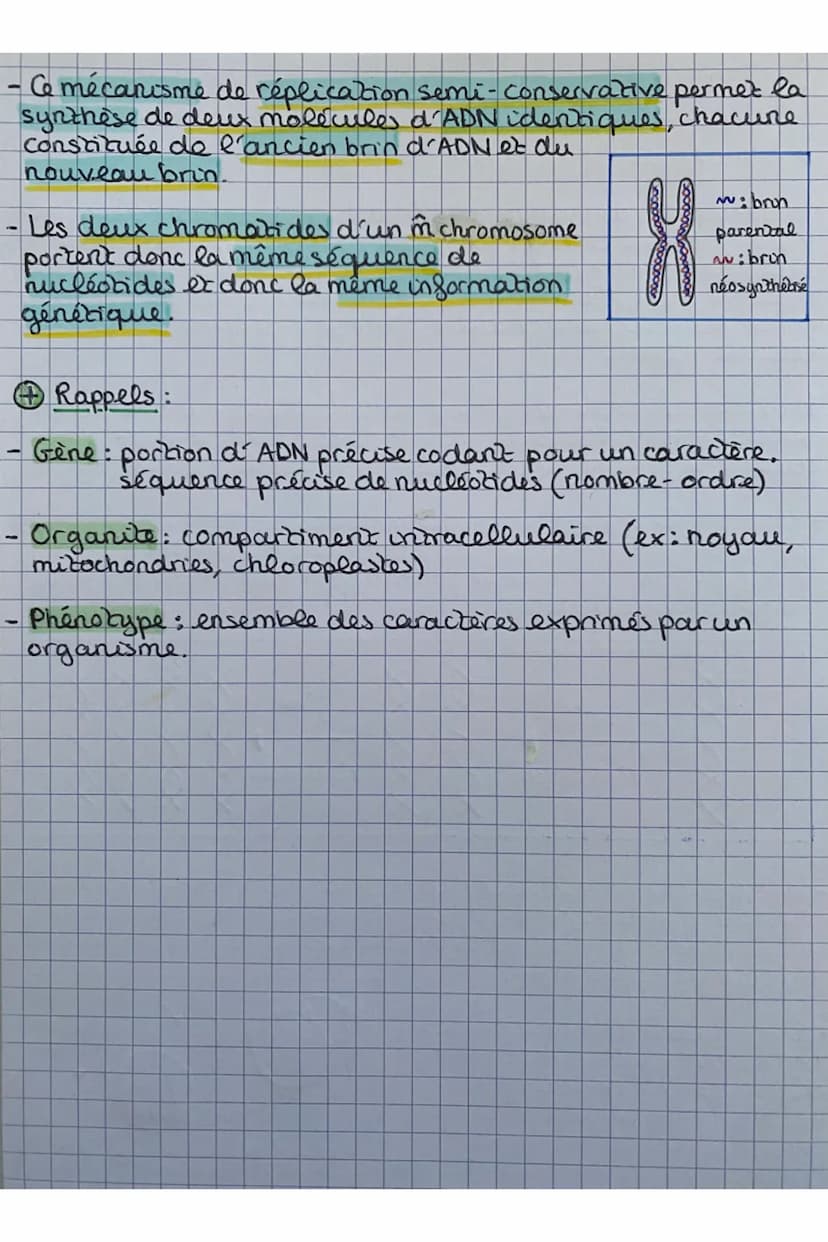 - Ce mécanisme de réplication semi-conservative permet la
synthèse de deux molécules d'ADN identiques, chacune
constituée de l'ancien brin d'ADN et du
nouveau brin.
- Les deux chromatides d'un m̂ chromosome
portent donc la même séquence de
nucléotides et donc la même information
génétique.
: brin
parental
: brin
néosynthétisé
+ Rappels :
- Gène : portion d'ADN précise codant pour un caractère.
séquence précise de nucléotides (nombre - ordre)
- Organite : compartiment intracellulaire (ex : noyau,
mitochondries, chloroplastes)
- Phénotype : ensemble des caractères exprimés par un
organisme.